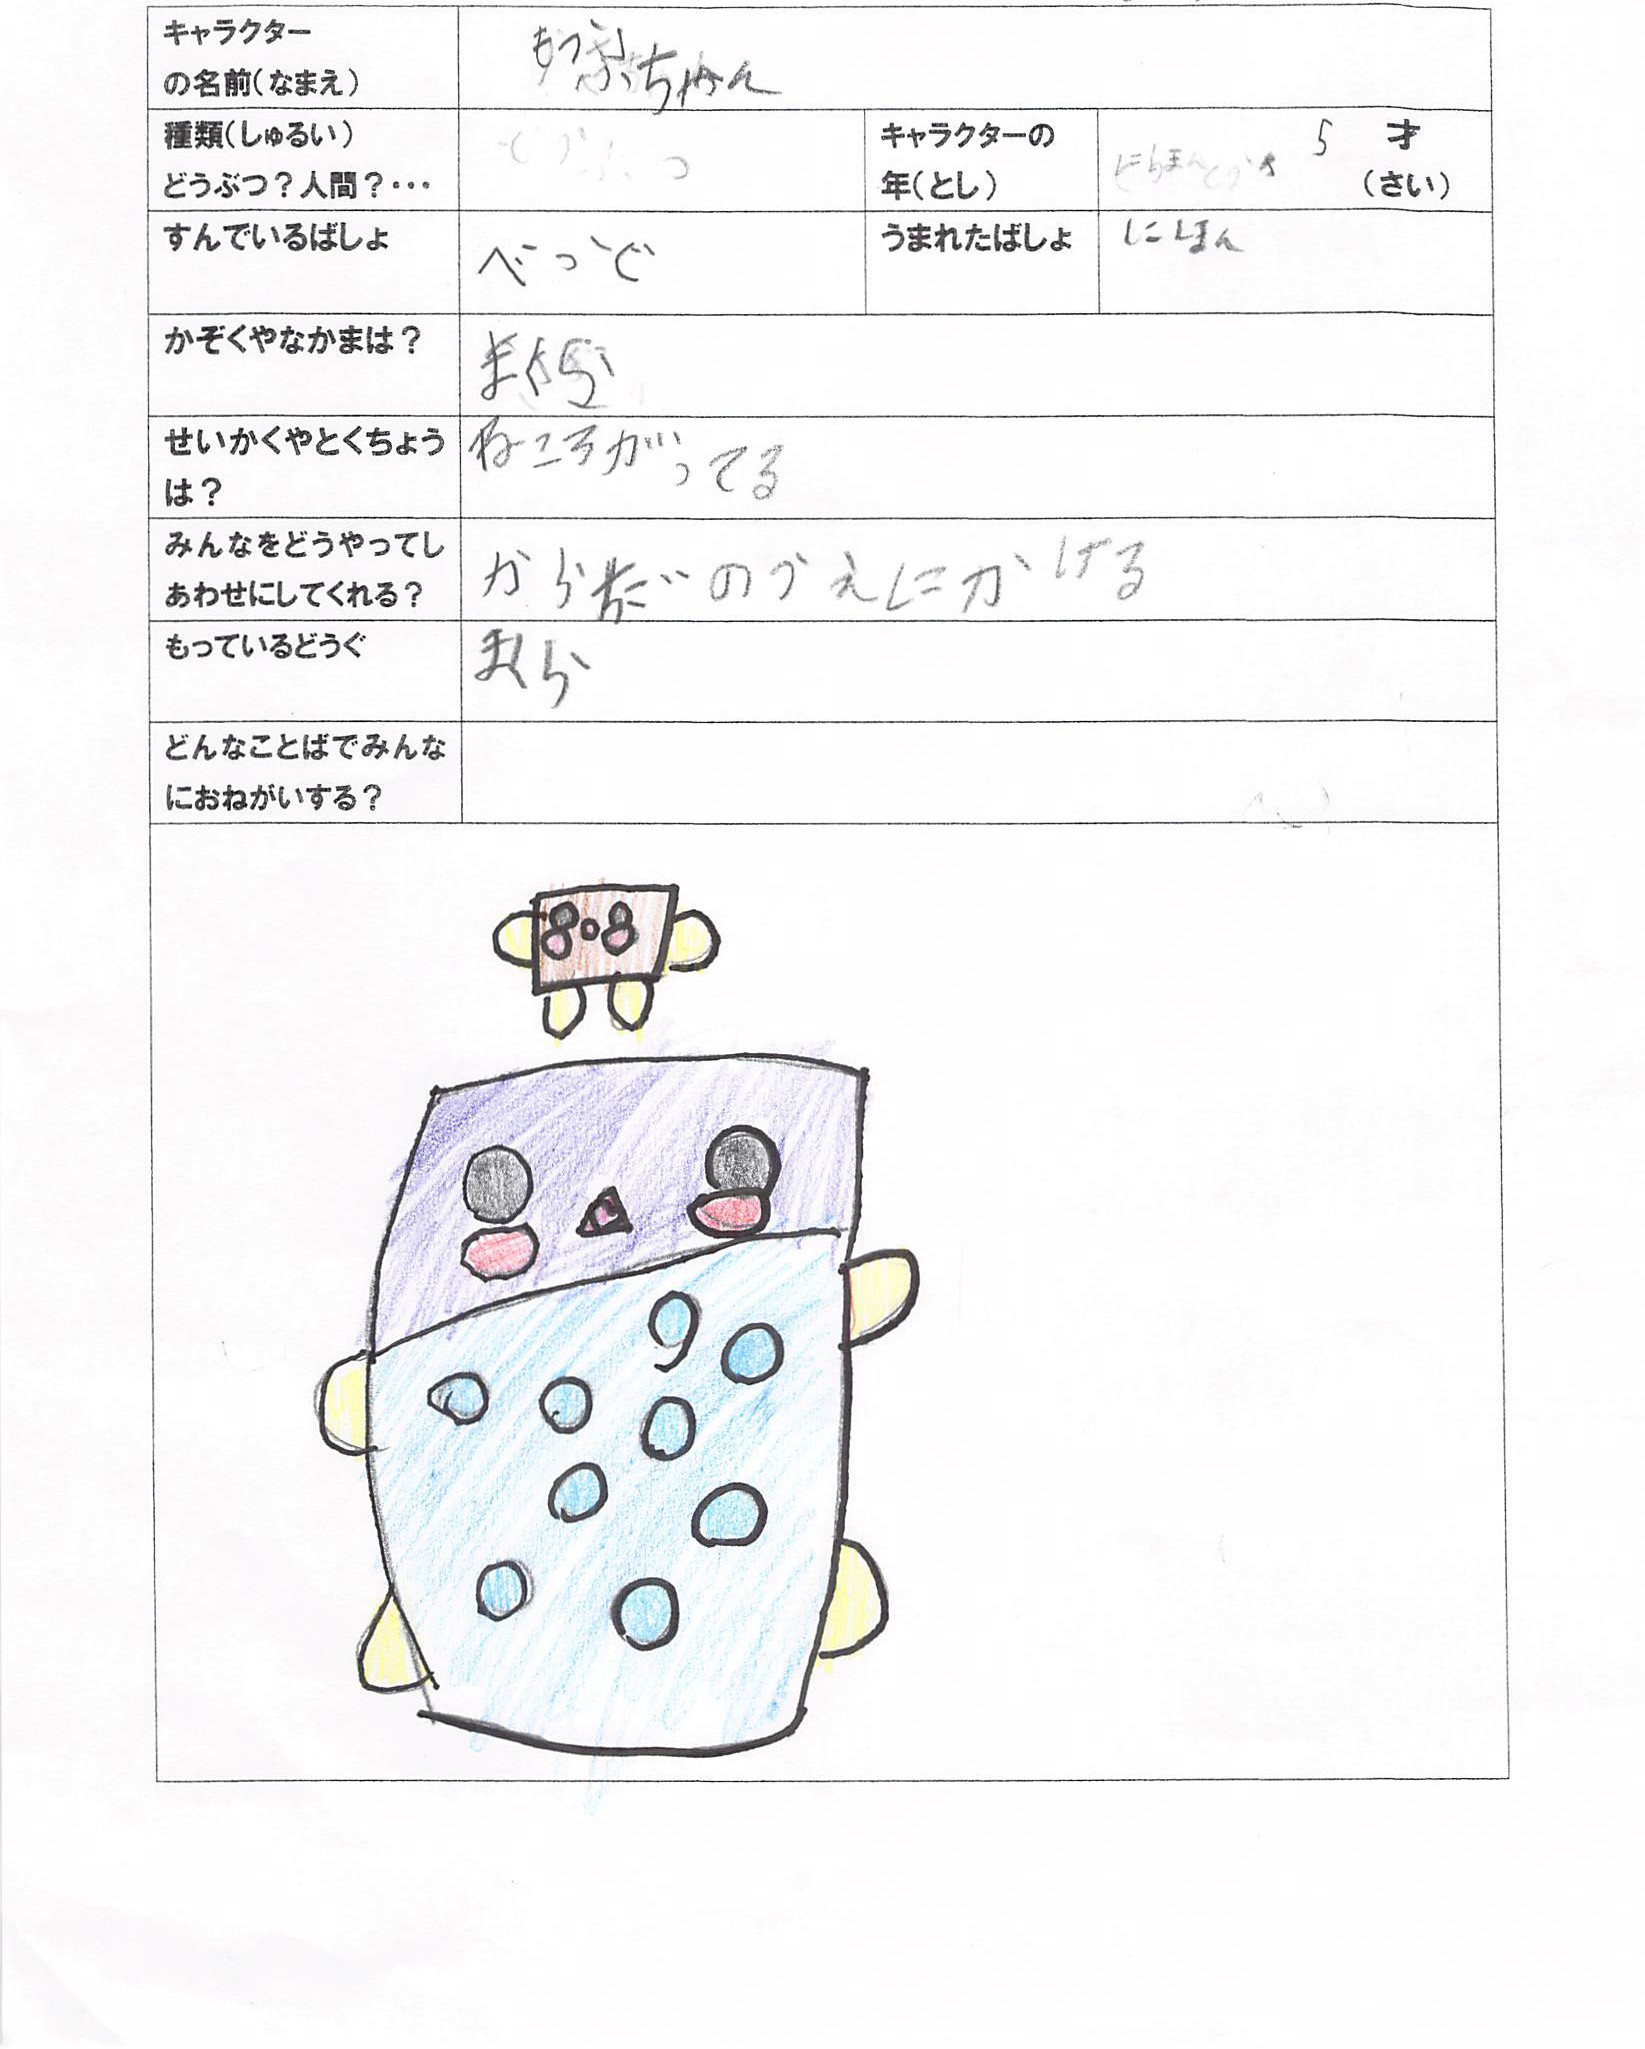 キャラクター
の名前(なまえ)
もうふちゃん
種類(しゅるい)
どうぶつ?人間?・・・
キャラクターの
年(とし)
5 才
(さい)
すんでいるばしょ
べっど
うまれたばしょ
にほん
かぞくやなかまは?
まくら
せいかくやとくちょう
は?
ねころがってる
みんなをどうやってし
あわせにしてくれる?
からだのうえにかける
もっているどうぐ
まくら
どんなことばでみんな
におねがいする?